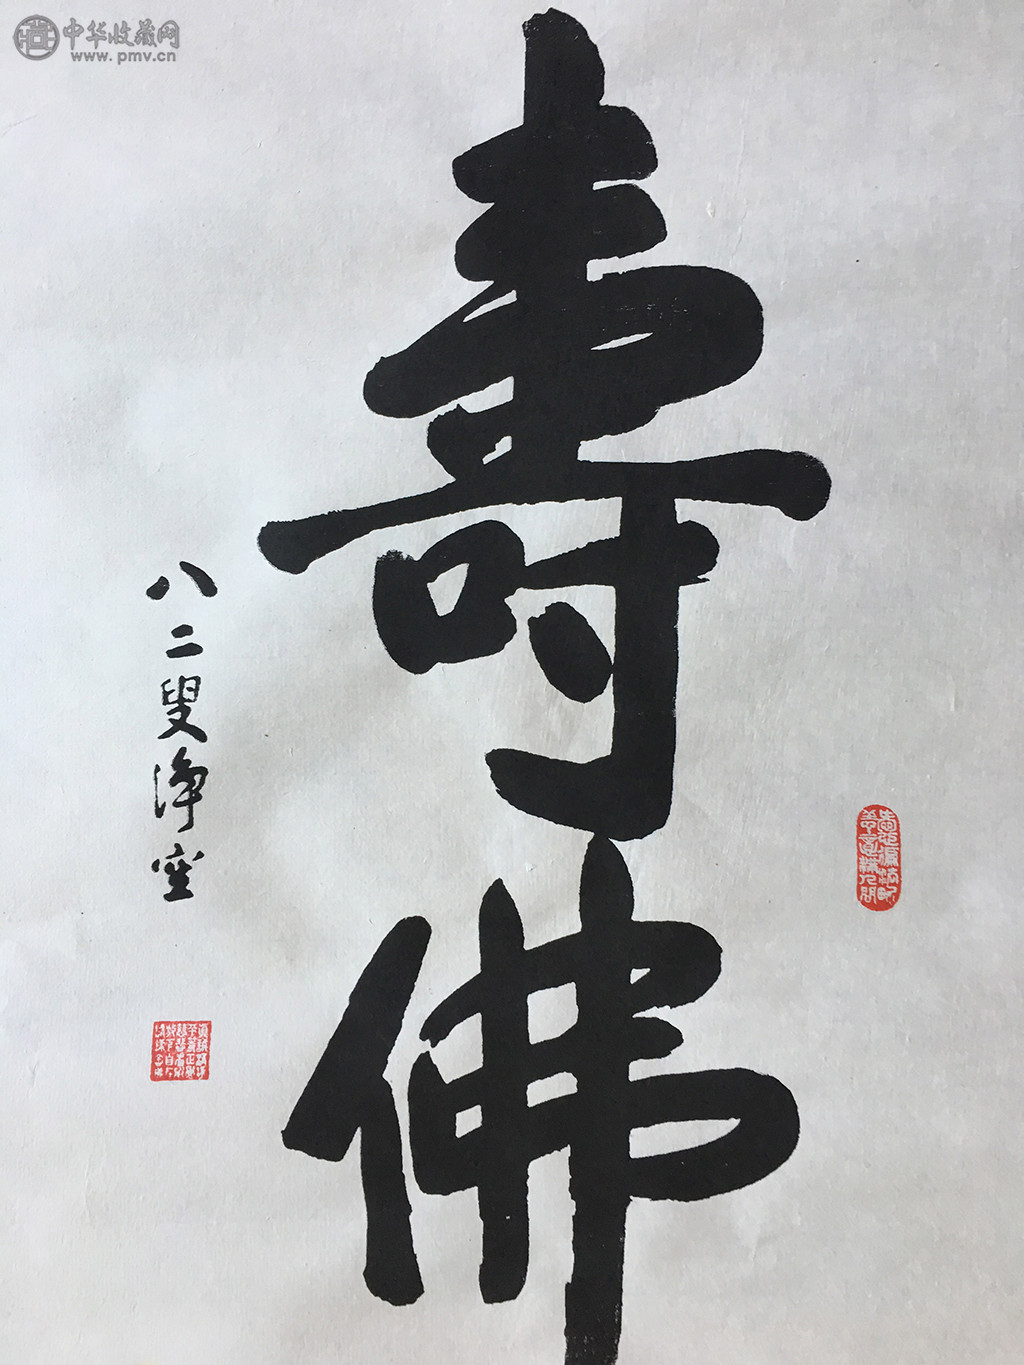 中华收藏网
www.pmv.cn
壽佛
八二叟淨空